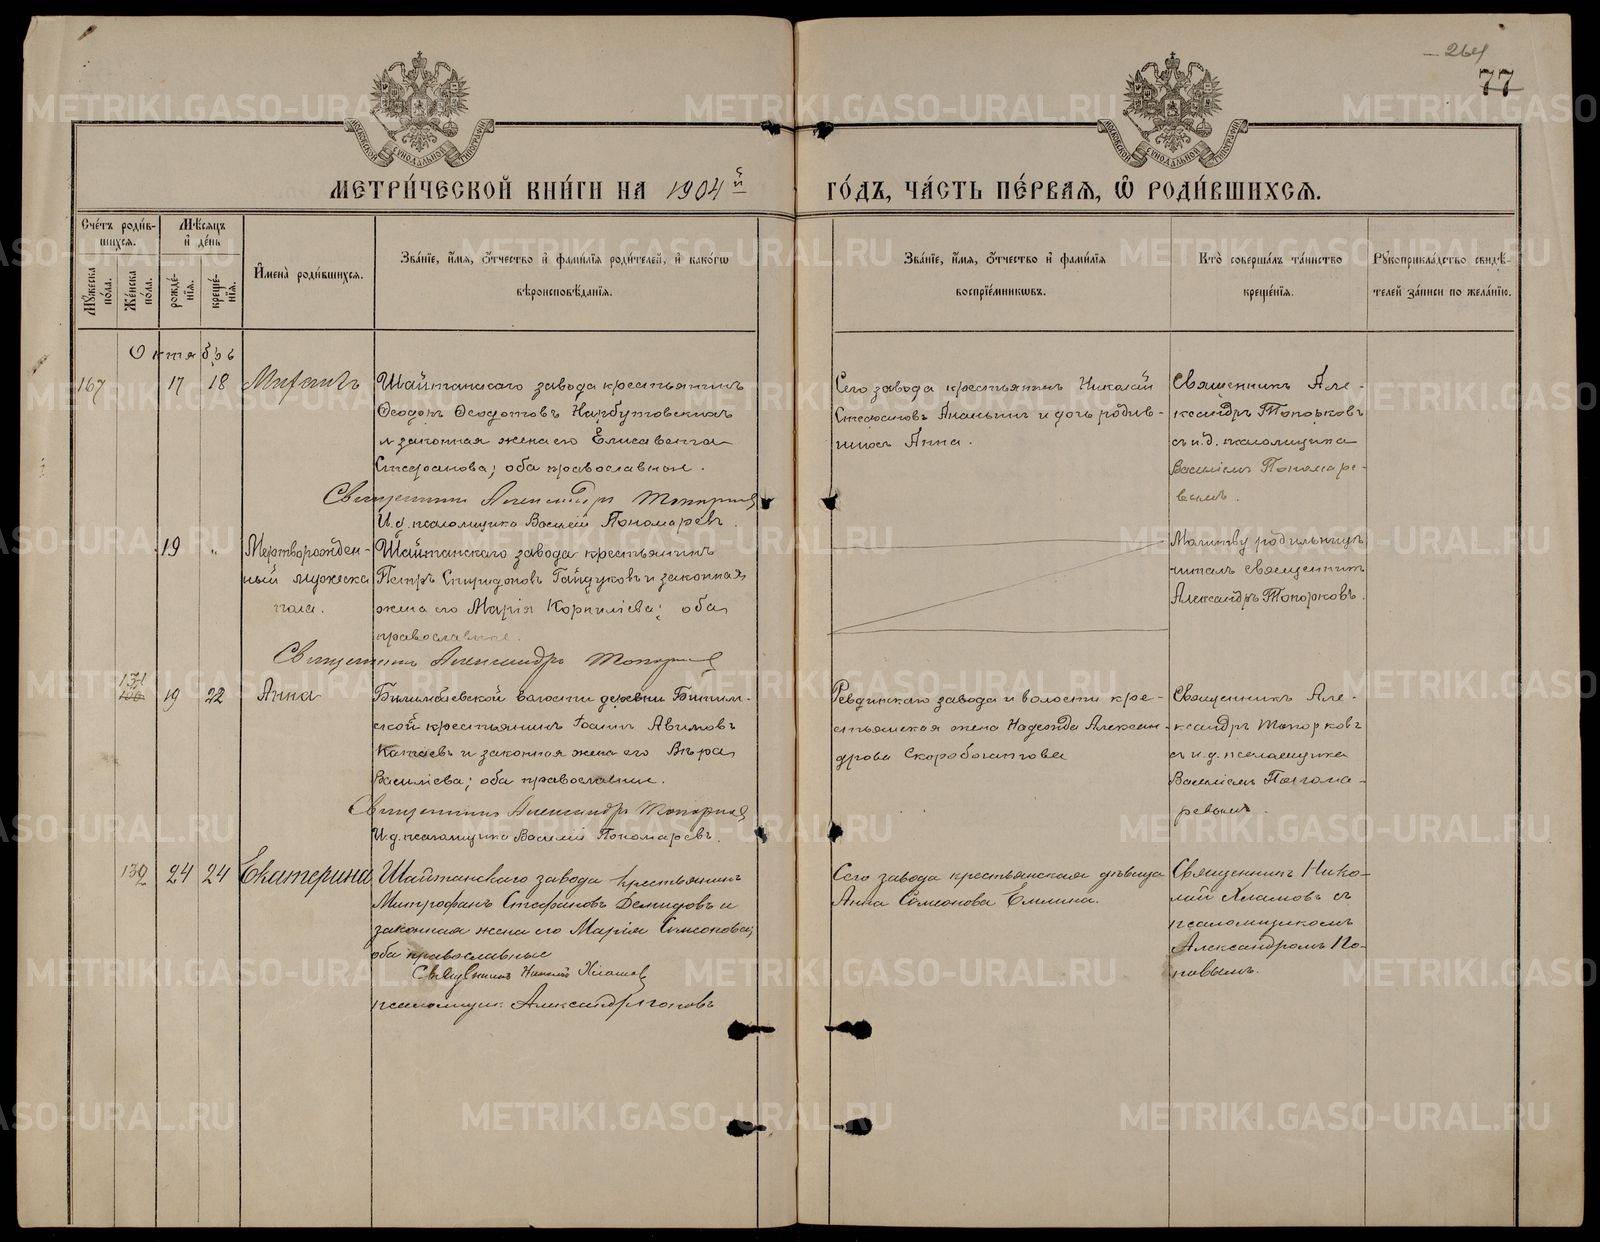 264
77
МОСКОВСКОЙ СѴНОДАЛЬНОЙ ТИПОГРАФІИ
МОСКОВСКОЙ СѴНОДАЛЬНОЙ ТИПОГРАФІИ
МЕТРИ́ЧЕСКОЙ КНИ́ГИ НА 1904й
ГО́ДЪ, ЧА́СТЬ ПЕ́РВАЯ, Ѿ РОДИ́ВШИХСЯ.
Счетъ роди́в-
шихся.
Мѣ́сяцъ
и҆ де́нь
Мꙋ́жеска
по́ла.
Же́нска
по́ла.
рожде́-
нїя.
креще́-
нїя.
И҆мена̀ роди́вшихся.
Зва́нїе, и҆́мя, ѻ҆́тчество и҆ фами́лїя роди́телей, и҆ како́гѡ
вѣроисповѣ́данїя.
Зва́нїе, и҆́мя, ѻ҆́тчество и҆ фами́лїя
воспрїе́мникѡвъ.
Кто̀ соверша́лъ та́инство
креще́нїя.
Рꙋкоприкла́дство свидѣ́-
телей за́писи по жела́нїю.
Октябрь
167
17
18
Шайтанскаго завода крестьянинъ
Ѳеодотъ Ѳеодотовъ Нарбутовскихъ
и законная жена его Елисавета
Стефанова; оба православные.
Священникъ Александръ Топорковъ
И.д. псаломщика Василій Пономаревъ.
Сего завода крестьянинъ Николай
Стефановъ Ананьинъ и дочь родив-
шихъ Анна.
Священникъ Але-
ксандръ Топорковъ
съ и.д. псаломщика
Василіемъ Пономаре-
вымъ.
19
"
Мертворожден-
ный мужеска
пола.
Шайтанскаго завода крестьянинъ
Петръ Спиридоновъ Гайдуковъ и законная
жена его Марія Корнилiева; оба
православные.
Священникъ Александръ Топорковъ
Молитву родильницѣ
читалъ священникъ
Александръ Топорковъ.
131
19
22
Анна
Билимбаевской волости деревни Битим-
ской крестьянинъ Іоаннъ Авимовъ
Катаевъ и законная жена его Вѣра
Василіева; оба православные.
Священникъ Александръ Топорковъ
И.д. псаломщика Василій Пономаревъ.
Ревдинскаго завода и волости кре-
стьянская жена Надежда Алексан-
дрова Скоробогатова
Священникъ Але-
ксандръ Топорковъ
съ и.д. псаломщика
Василіемъ Понома-
ревымъ.
132
24
24
Екатерина
Шайтанскаго завода крестьянинъ
Митрофанъ Стефановъ Демидовъ и
законная жена его Марія Симеонова;
оба православные
Священникъ Николай Хламовъ
псаломщикъ Александръ Поповъ
Сего завода крестьянская дѣвица
Анна Симеонова Емлина.
Священникъ Нико-
лай Хламовъ съ
псаломщикомъ
Александромъ По-
повымъ.
METRIKI.GASO-URAL.RU